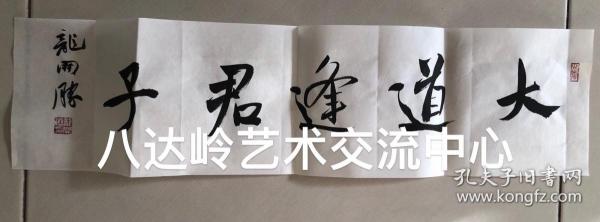 大道逢君子
龍雨勝
八达岭艺术交流中心
孔夫子旧书网
www.kongfz.com